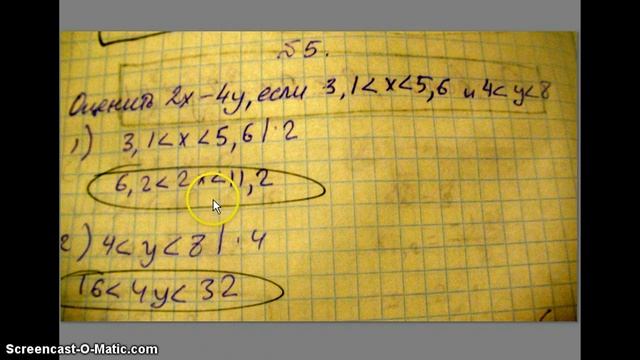 №5.
Оценить 2x-4y, если 3,1<x<5,6 и 4<y<8
1) 3,1<x<5,6|·2
6,2<2x<11,2
2) 4<y<8|·4
16<4y<32
Screencast-O-Matic.com